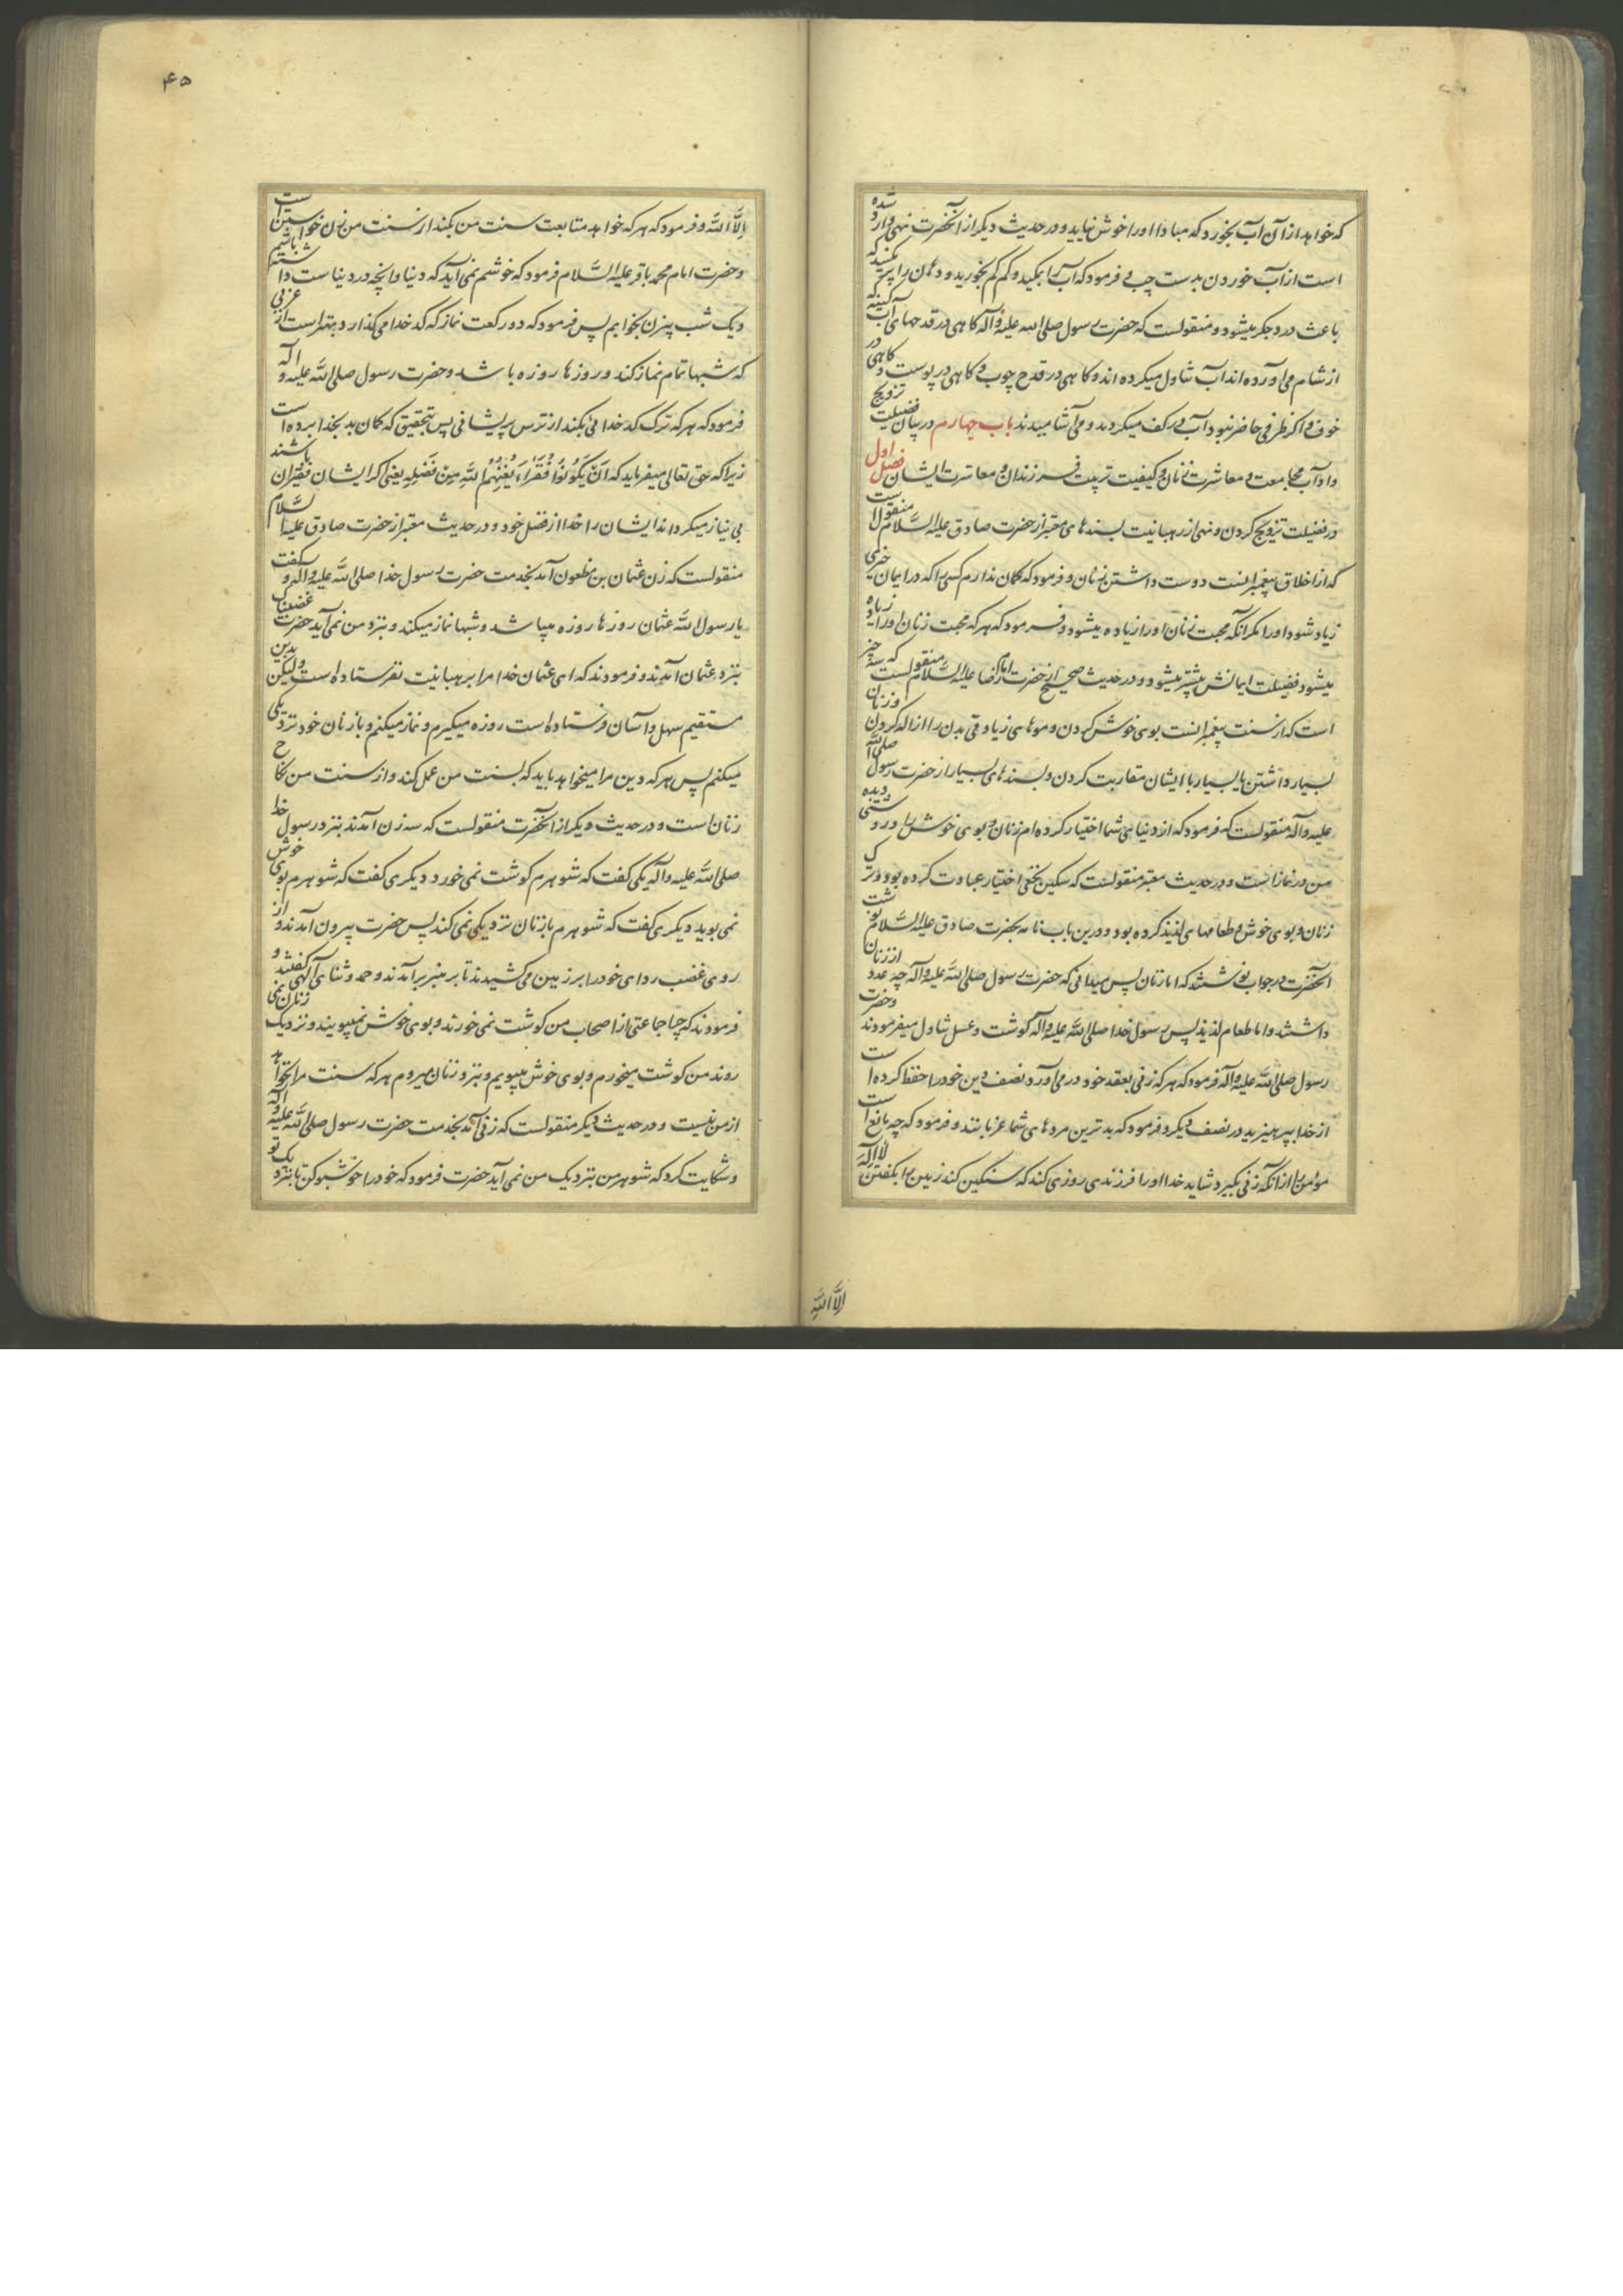 که خواهد از آن آب بخورد که مبادا او را خوش نیاید و در حدیث دیگر از آنحضرت نهی وارد شده
است از آب خوردن بدست چپ و فرمود که آب را بمکید و کم کم بخورید و دهان را پر مکنید که
باعث درد جگر میشود و منقولست که حضرت رسول صلی الله علیه و آله کاهی در قدحهای آبکینه که
از شام می آورده اند آب تناول میکرده اند و کاهی در قدح چوب و کاهی در پوست و کاهی در
خوف و اکر ظرفی حاضر نبود آب در کف میکردند و می آشامیدند باب چهارم در بیان فضیلت تزویج
و آداب مجامعت و معاشرت زنان و کیفیت تربیت فرزندان و معاشرت ایشان فصل اول
در فضیلت تزویج کردن و نهی از رهبانیت بسندهای معتبر از حضرت صادق علیه السلام منقولست
که از اخلاق پیغمبرانست دوست داشتن زنان و فرمود که کمان ندارم کسی را که در ایمان خیری
زیاد شود او را مکر آنکه محبت زنان او را زیاده میشود و فرمود که هر که محبت زنان او را زیاده
میشود فضیلت ایمانش بیشتر میشود و در حدیث صحیح از حضرت امام رضا علیه السلام منقولست که سه چیز
است که از سنت پیغمبرانست بوی خوش کردن و موهای زیادتی بدن را ازاله کردن و زنان
بسیار داشتن یا بسیار با ایشان مقاربت کردن و بسندهای بسیار از حضرت رسول صلی الله
علیه و آله منقولست که فرمود که از دنیای شما اختیار کرده ام زنان و بوی خوش را و روشنی دیده
من در نماز است و در حدیث معتبر منقولست که سکین نخعی اختیار عبادت کرده بود و ترک
زنان و بوی خوش و طعامهای لذیذ کرده بود و درین باب نامه بحضرت صادق علیه السلام نوشت
آنحضرت در جواب نوشتند که اما زنان پس میدانی که حضرت رسول صلی الله علیه و آله چه عدد از زنان
داشتند و اما طعام لذیذ پس رسول خدا صلی الله علیه و آله کوشت و عسل تناول میفرمودند و حضرت
رسول صلی الله علیه و آله فرمود که هر که زنی بعقد خود در می آورد نصف دین خود را حفظ کرده است
از خدا بپرهیزید در نصف دیکر و فرمود که بدترین مردهای شما عزبانند و فرمود که چه مانع است
مؤمن را از آنکه زنی بگیرد شاید خدا او را فرزندی روزی کند که سنکین کند زمین را بکفتن لا اله
الا الله
۴۵
الا الله و فرمود که هر که خواهد متابعت سنت من بکند از سنت من زن خواستن است
و حضرت امام محمد باقر علیه السلام فرمود که خوشم نمی آید که دنیا و آنچه در دنیاست داشته باشم
و یک شب بیزن بخوابم پس فرمود که دو رکعت نماز که کدخدا میکذارد بهتر است از عزبی
که شبها تمام نماز کند و روزها روزه باشد و حضرت رسول صلی الله علیه و آله
فرمود که هر که ترک کدخدائی بکند از ترس پریشانی پس بتحقیق که کمان بد بخدا برده است
زیرا که حق تعالی میفرماید که ان یکونوا فقراء یغنهم الله من فضله یعنی اکر ایشان فقیران باشند
بی نیاز میکرداند ایشان را خدا از فضل خود و در حدیث معتبر از حضرت صادق علیه السلام
منقولست که زن عثمان بن مظعون آمد بخدمت حضرت رسول خدا صلی الله علیه و آله و کفت
یا رسول الله عثمان روزها روزه میباشد و شبها نماز میکند و بنزد من نمی آید حضرت غضبناک
بنزد عثمان آمدند و فرمودند که ای عثمان خدا مرا برهبانیت نفرستاده است ولیکن بدین
مستقیم سهل و آسان فرستاده است روزه میگیرم و نماز میکنم و با زنان خود نزدیکی
میکنم پس هر که دین مرا میخواهد باید که بسنت من عمل کند و از سنت من نکاح
زنان است و در حدیث دیگر از آنحضرت منقولست که سه زن آمدند بنزد رسول خدا
صلی الله علیه و آله یکی کفت که شوهرم کوشت نمی خورد دیکری کفت که شوهرم بوی خوش
نمی بوید دیکری کفت که شوهرم با زنان نزدیکی نمی کند پس حضرت بیرون آمدند و از
روی غضب ردای خود را بر زمین می کشیدند تا بر منبر برآمدند و حمد و ثنای الهی کفتند و
فرمودند که چرا جماعتی از اصحاب من کوشت نمی خورند و بوی خوش نمیبویند و نزدیک زنان نمی
روند من کوشت میخورم و بوی خوش میبویم و بنزد زنان میروم هر که سنت مرا نخواهد
از من نیست و در حدیث دیکر منقولست که زنی آمد بخدمت حضرت رسول صلی الله علیه و آله
و شکایت کرد که شوهر من بنزدیک من نمی آید حضرت فرمود که خود را خوشبو کن تا بنزدیک تو